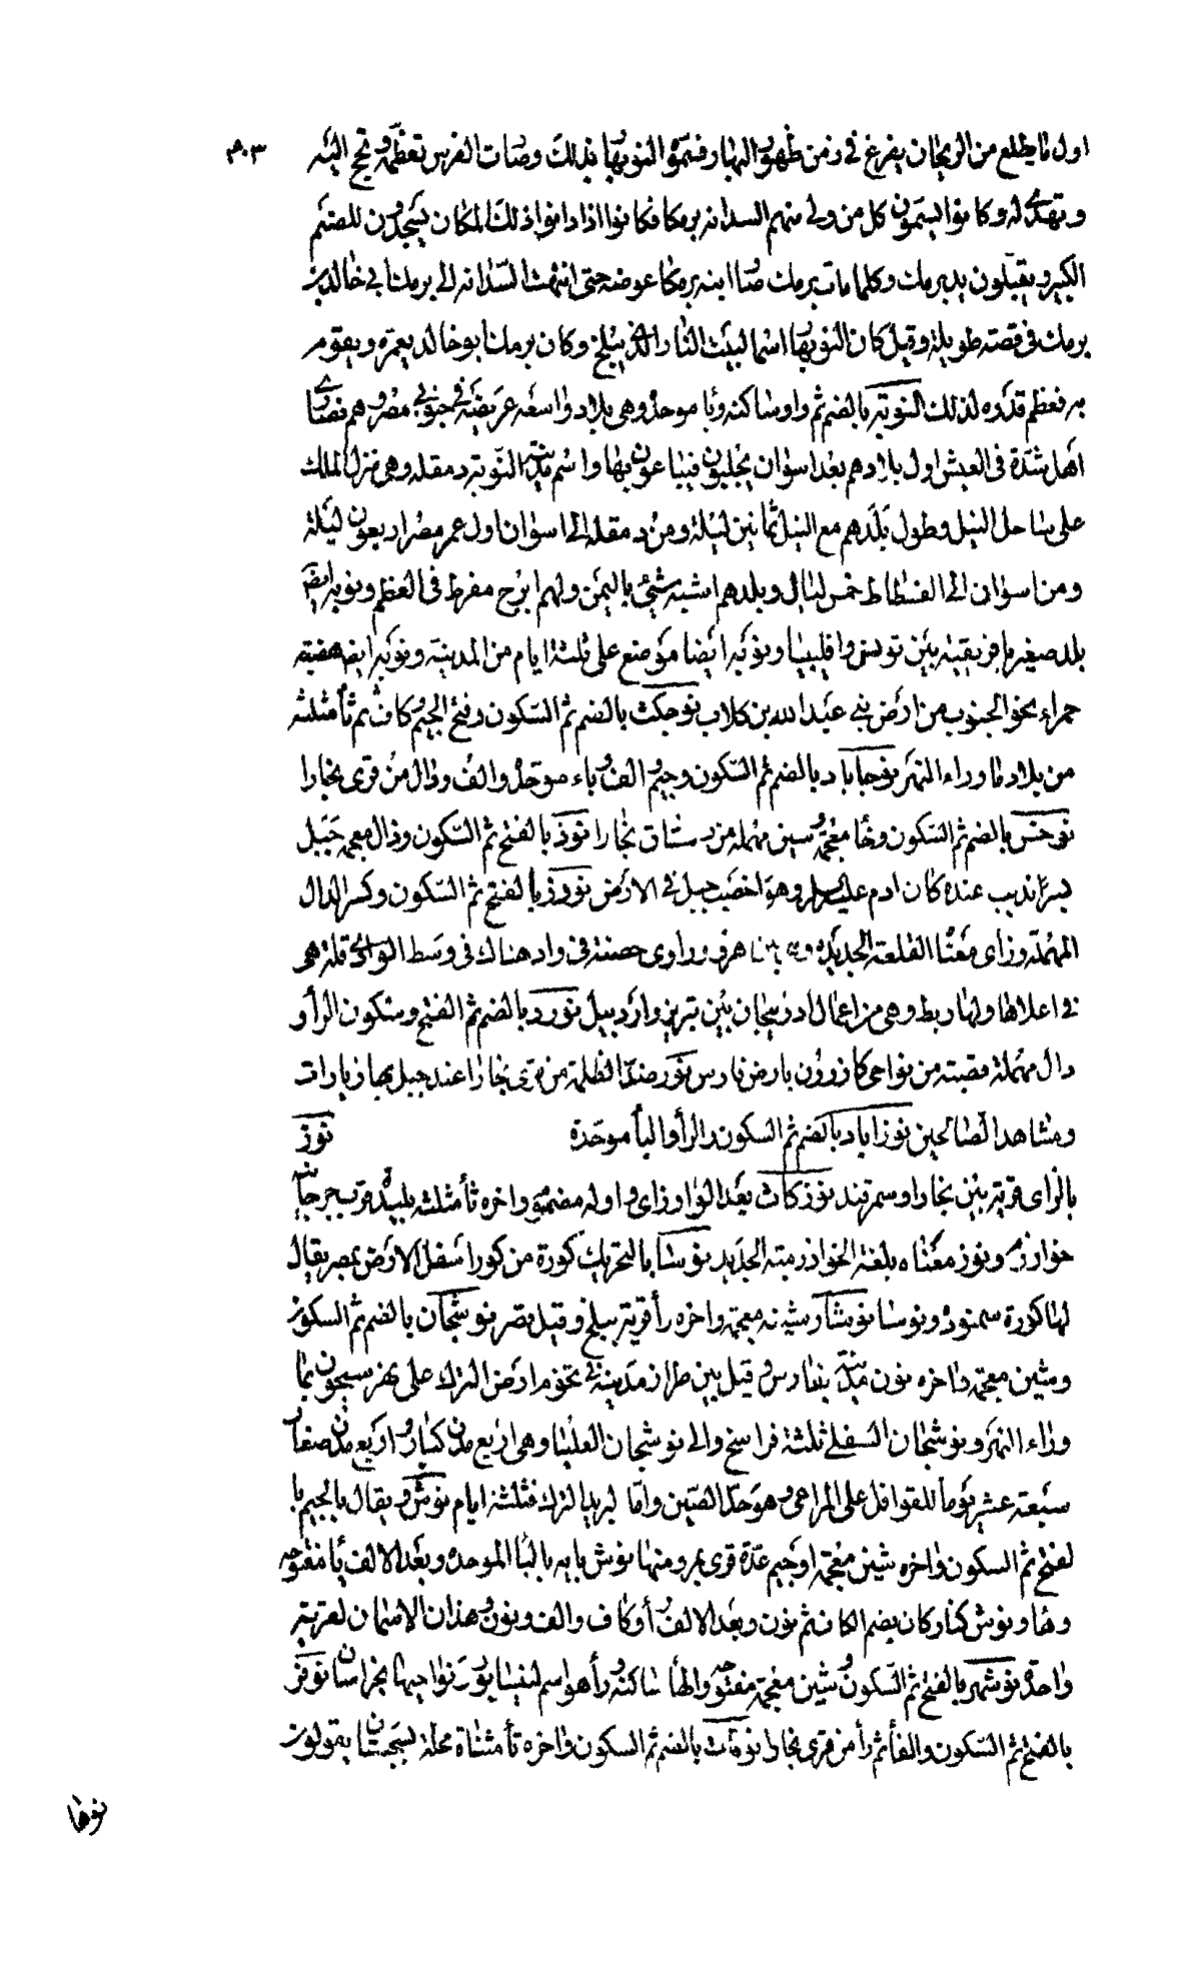 اول ما يطلع من الريحان يفرغ في زمن ظهور البهار فسموا النوبهار بذلك وصات الفرس تعظمه وتحج اليه ٣٠٣
وتهدى له وكانوا يسمون كل من ولى منهم السدانه برمكا فكانوا اذا دانوا ذلك المكان يسجدون للصنم
الكبير ويقبلون يد برمك وكلما مات برمك صا ابنه برمكا عوضه حتى انتهت السدانه الى برمك ابى خالد بن
برمك فى قصته طويلة وقيل كان النوبهار اسما لبيت النار الذى ببلخ وكان برمك ابو خالد يعمره ويقوم
به فعظم قدره لذلك النوبة بالضم ثم واو ساكنه وبا موحده وهى بلاد واسعه عريضة فى جنوبى مصر وهم نصارى
اهل شدة فى العيش اول بلادهم بعد اسوان يجلبون فيباعون بها واسم مدينة النوبة دمقله وهى منزل الملك
على ساحل النيل وطول بلدهم مع النيل ثمانين ليلة ومن دمقله الى اسوان اول عمر مصر اربعون ليلة
ومن اسوان الى الفسطاط خمس ليال وبلدهم اشبه شئ باليمن ولهم ابرح مفرط فى العظم ونوبه ايضا
بلد صغير بافريقيه بين تونس واقليبيا ونوبه ايضا موضع على ثلثة ايام من المدينة ونوبه ايض هضبه
حمراء بحو الجنوب من ارض بنى عبد الله بن كلاب نوجكث بالضم ثم السكون وفتح الجيم وكاف ثم ثا مثلثه
من بلاد ما وراء النهر نوجاباد بالضم ثم السكون وجيم والف وباء موحده والف ودال من قرى بخارا
نوخس بالضم ثم السكون وخا معجمه وسين مهمله من رستاق بخارا نوذ بالفتح ثم السكون وذال معجمه جبل
بسرانديب عنده كان ادم عليه السلام وهو اخصب جبل فى الارض نودز بالفتح ثم السكون وكسر الدال
المهملة وزاى معنا القلعة الجديده هرف وراوى حصنه فى واد هناك فى وسط الوادى قلة هى
فى اعلاها ولها ربط وهى من اعمال ادربيجان بين تبريز واردبيل نورد بالضم ثم الفتح وسكون الرأ و
دال مهملة قصبته من نواحى كازرون بارض فارس نور ضد الظلمة من قرى بخارا عند جبل بها زيارات
ومشاهد الصالحين نوزاباد بالضم ثم السكون والرأ والبأ موحدة نوز
بالزاى قرية بين بخارا وسمرقند نوزكاث بعد الواو زاى واوله مضموم واخره ثأ مثلثه بليدة قرب جرجانيه
خوارزم ونوز معناه بلغة الخوارزميه الجديد نوسا بالتحريك كورة من كور اسفل الارض بمصر يقال
لها كورة سمنود ونوسا نوشار شينه معجمه واخره رأ قرية ببلخ وقيل قصر نوشجان بالضم ثم السكون
وشين معجمه واخره نون مدينة بفارس وقيل بين طراز مدينة فى تخوم ارض الترك على نهر سيحون بما
وراء النهر ونوشجان السفلى ثلثة فراسخ والى نوشجان العليا وهى اربع مدن كبار واربع مدن صغار
سبعة عشر يوما للقوافل على المراعى وهو حد الصين واما لبريد الترك فثلثة ايام نوش ويقال بالجيم با
لفتح ثم السكون واخره شين معجمه او جيم عدة قرى بمرو منها نوش بايه بالبا الموحده وبعد الالف يا مفتوحه
وها ونوش كناركان بضم الكاف ثم نون وبعد الالف رأ وكاف والف ونون وهذان الاسمان لقرية
واحدة نوشهر بالفتح ثم السكون وشين معجمة مفتوحه والها ساكنه ورأ هو اسم لنيسابور ونواحيها بخراسان نوفر
بالفتح ثم السكون والفأ ثم رأ من قرى بخارا نوقات بالضم ثم السكون واخره تأ مثناة محلة بسجستان يقولون
نوها